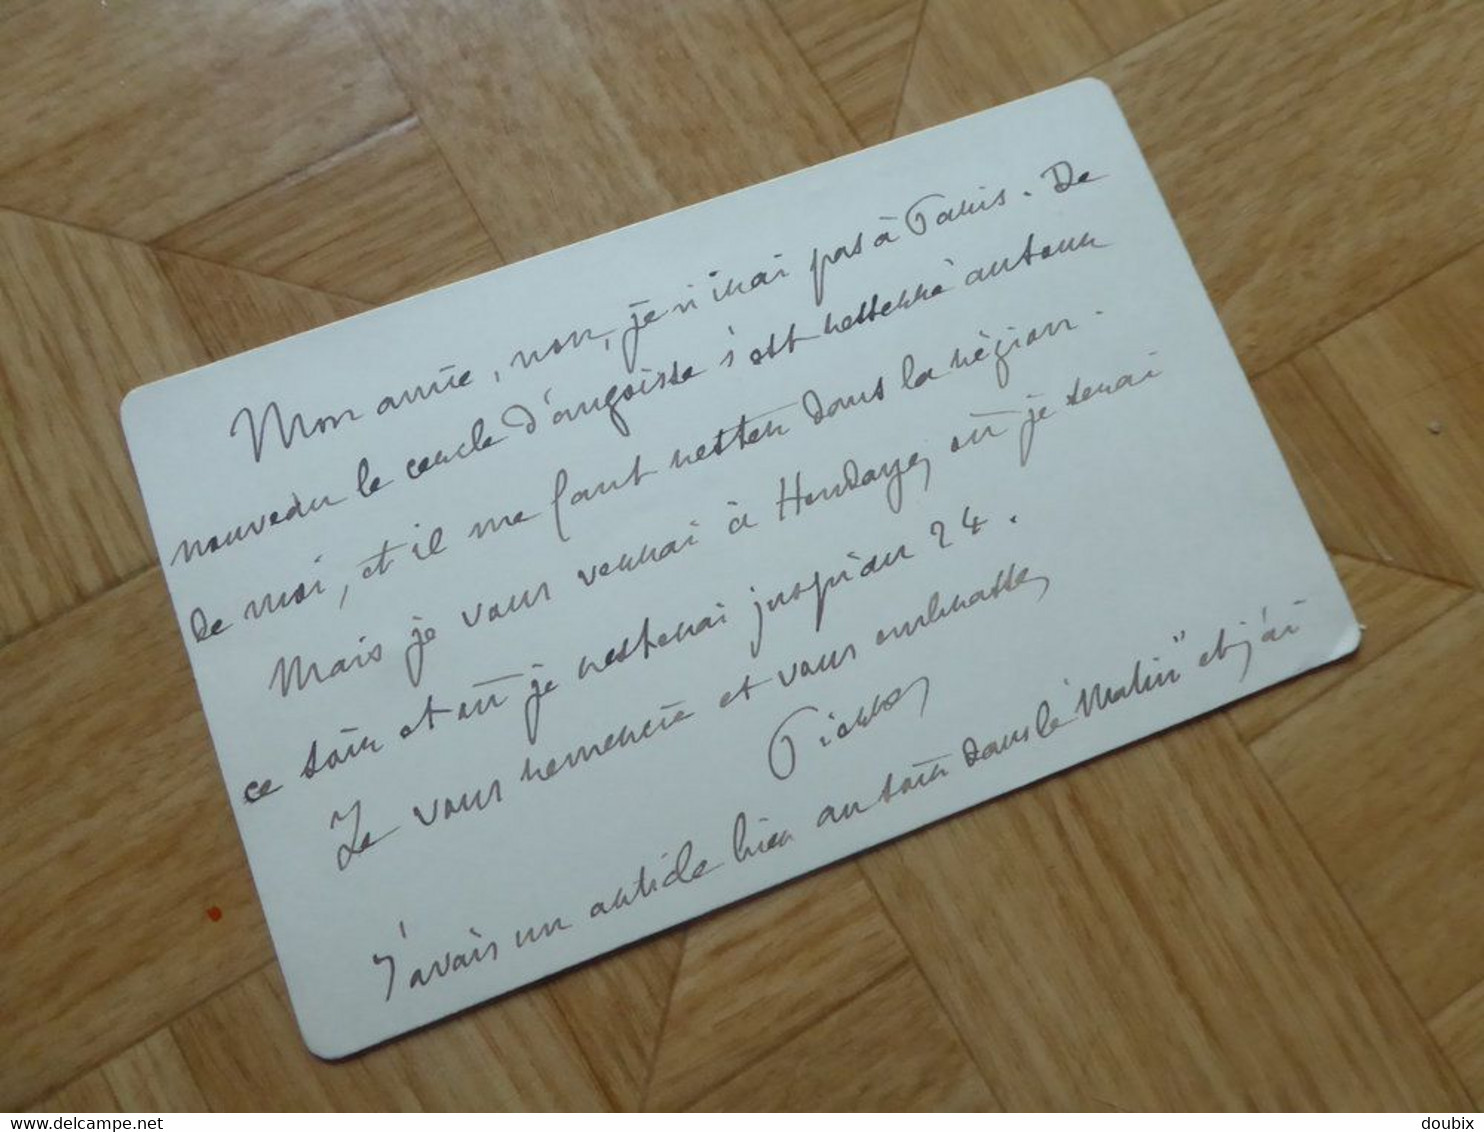 Mon amie, non, je n'irai pas à Paris. De
nouveau le cercle d'angoisse s'est resserré autour
de moi, et il me faut rester dans la région.
Mais je vous verrai à Hendaye, où je serai
ce soir et où je resterai jusqu'au 24.
Je vous remercie et vous embrasse,
Pierre
J'avais un article hier au soir dans le "Matin" et j'ai
delcampe.net
doubix